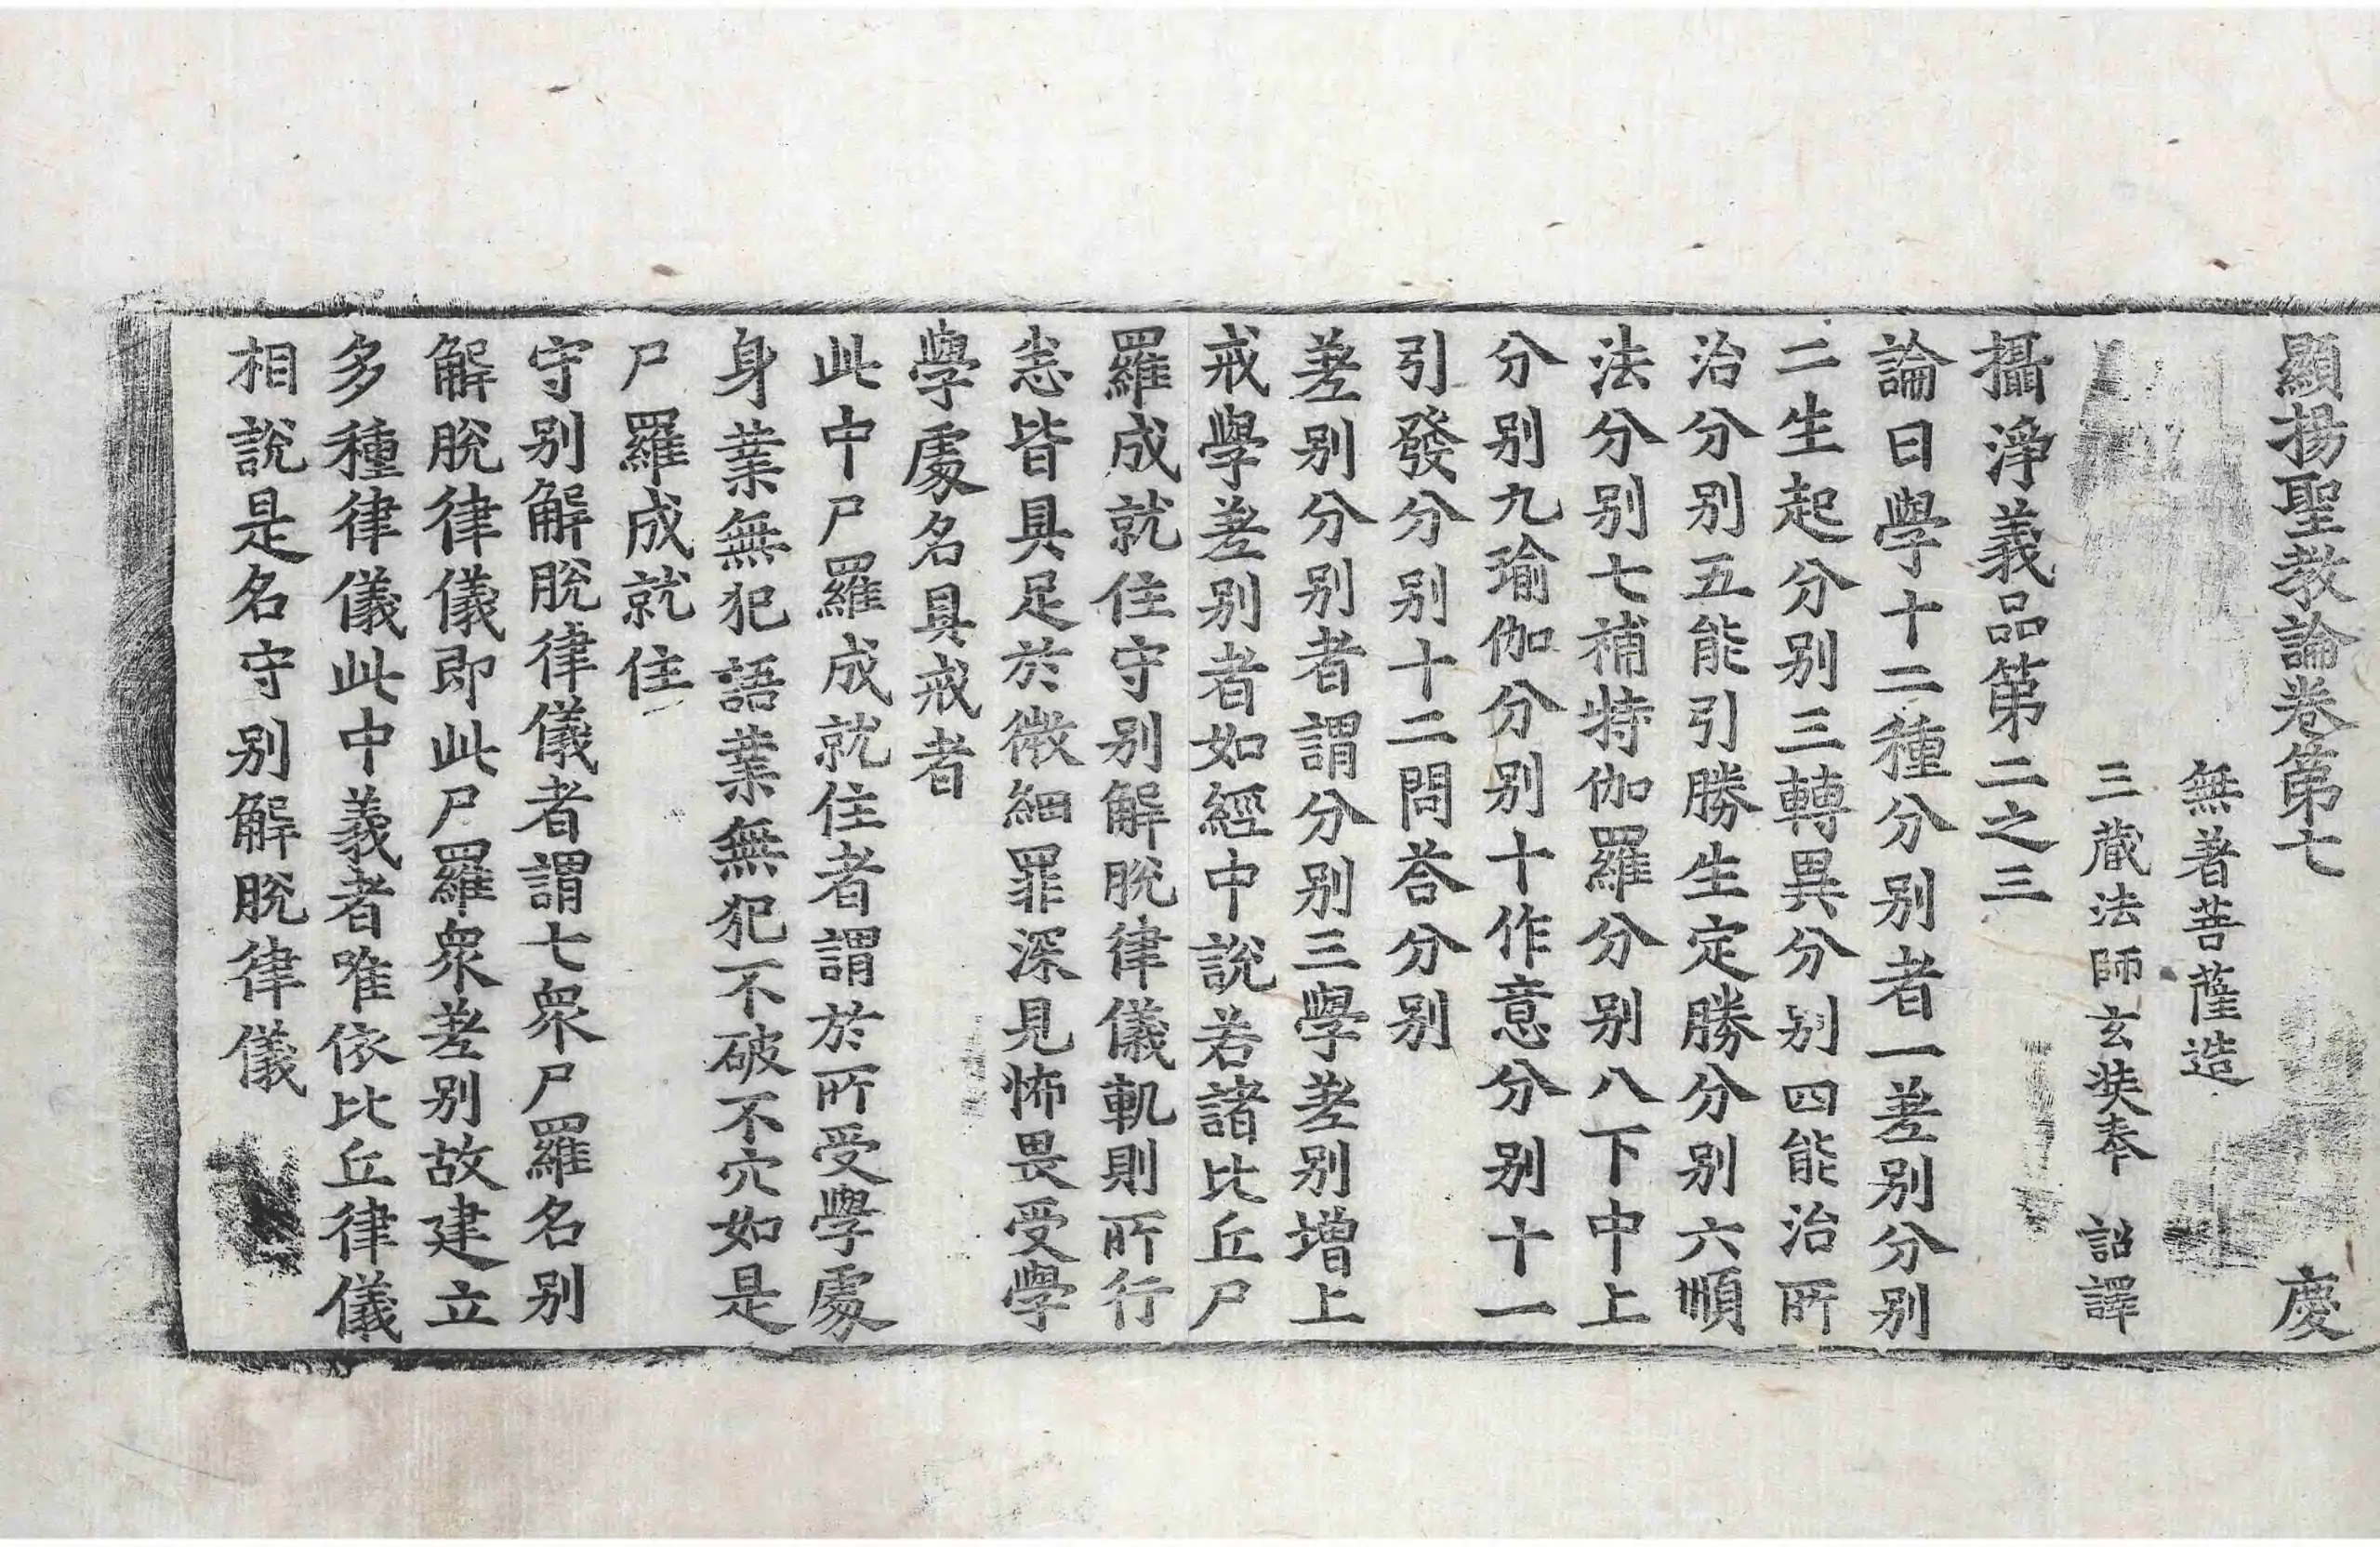 顯揚聖教論卷第七 慶
無著菩薩造
三藏法師玄奘奉 詔譯
攝淨義品第二之三
論曰學十二種分別者一差別分別
二生起分別三轉異分別四能治所
治分別五能引勝生定勝分別六順
法分別七補特伽羅分別八下中上
分別九瑜伽分別十作意分別十一
引發分別十二問荅分別
差別分別者謂分別三學差別增上
戒學差別者如經中說若諸比丘尸
羅成就住守別解脫律儀軌則所行
恙皆具足於微細罪深見怖畏受學
學處名具戒者
此中尸羅成就住者謂於所受學處
身業無犯語業無犯不破不穴如是
尸羅成就住
守別解脫律儀者謂七衆尸羅名別
解脫律儀即此尸羅衆差別故建立
多種律儀此中義者唯依比丘律儀
相說是名守別解脫律儀